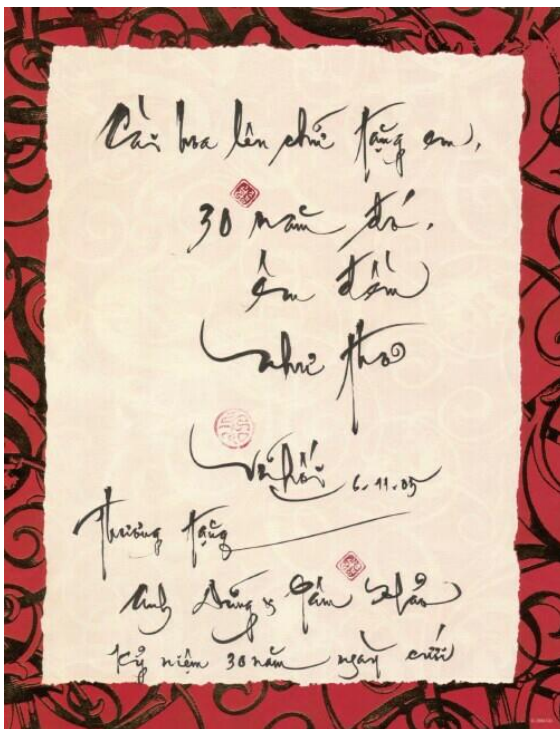 Cài hoa lên chữ tặng em,
30 năm đó,
êm đềm
như thơ
Vũ Hối 6.11.05
Thương tặng
Anh Dũng & Tâm
Kỷ niệm 30 năm ngày cưới